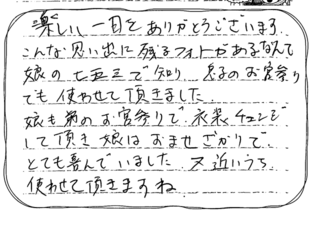 楽しい一日をありがとうございます
こんな思い出に残るフォトがあるなんて
娘の七五三で知り、息子のお宮参り
でも使わせて頂きました
娘も弟のお宮参りで、衣装チェンジ
して頂き娘はおませざかりで
とても喜んでいました 又近いうち
使わせて頂きますね